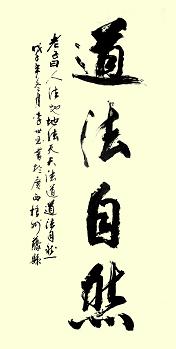 道法自然
老子曰人法地地法天天法道道法自然
戊子年冬月李世忠書於廣西梧州藤縣